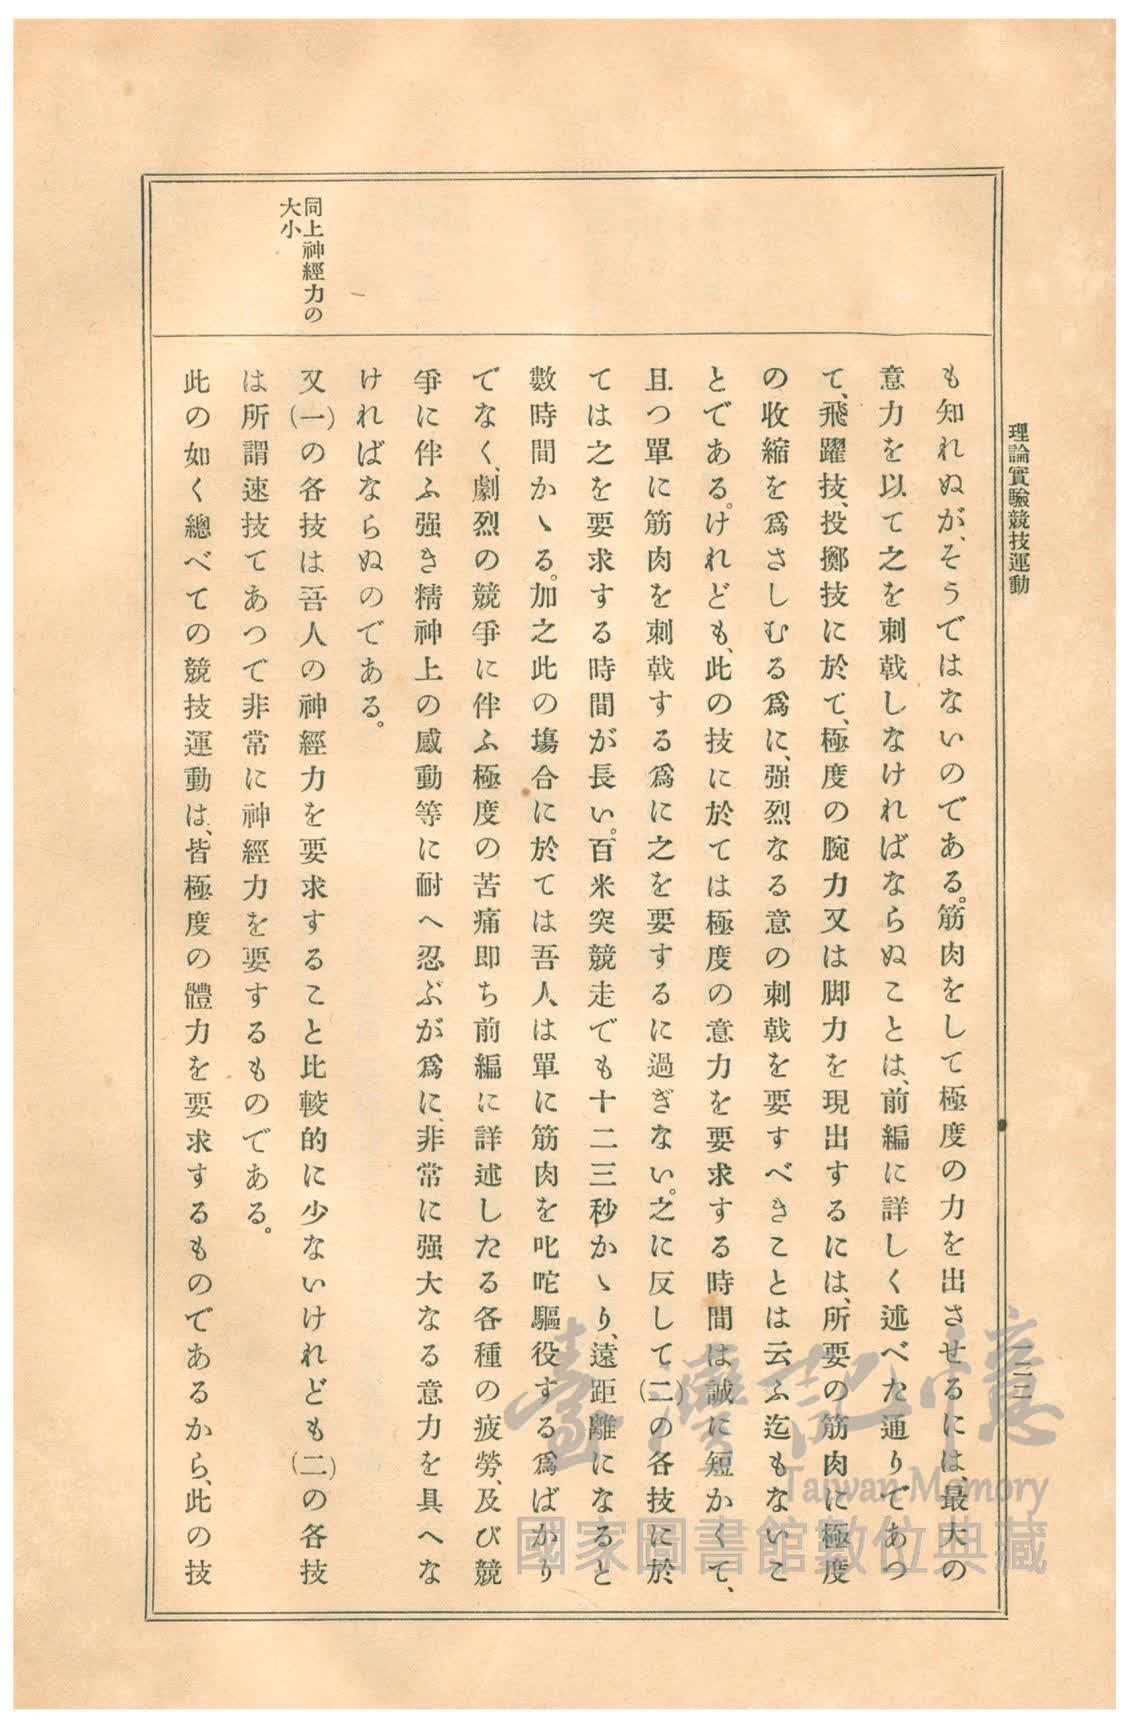 理論實驗競技運動
も知れぬが、そうではないのである。筋肉をして極度の力を出させるには、最大の
意力を以て之を刺戟しなければならぬことは、前編に詳しく述べた通りであつ
て、飛躍技、投擲技に於て、極度の腕力又は脚力を現出するには、所要の筋肉に極度
の收縮を爲さしむる爲に、强烈なる意の刺戟を要すべきことは云ふ迄もないこ
とである。けれども、此の技に於ては極度の意力を要求する時間は誠に短かくて、
且つ單に筋肉を刺戟する爲に之を要するに過ぎない。之に反して(二)の各技に於
ては之を要求する時間が長い。百米突競走でも十二三秒かゝり、遠距離になると
數時間かゝる。加之此の塲合に於ては吾人は單に筋肉を叱咤驅役する爲ばかり
でなく、劇烈の競爭に伴ふ極度の苦痛卽ち前編に詳述したる各種の疲勞、及び競
爭に伴ふ强き精神上の感動等に耐へ忍ぶが爲に、非常に强大なる意力を具へな
ければならぬのである。
同上神經力の
大小
又(一)の各技は吾人の神經力を要求すること比較的に少ないけれども(二)の各技
は所謂速技てあつで非常に神經力を要するものである。
此の如く總べての競技運動は、皆極度の體力を要求するものであるから、此の技
臺灣記憶
Taiwan Memory
國家圖書館數位典藏